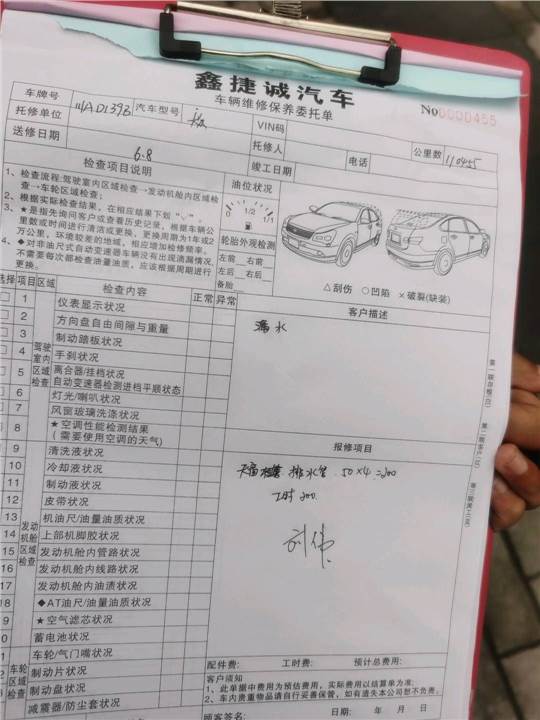 鑫捷诚汽车
车辆维修保养委托单
No0000455
车牌号 汽车型号 VIN码 公里数 110455
托修单位 托修人 电话
送修日期 6.8 竣工日期
检查项目说明
1、检查流程:驾驶室内区域检查→发动机舱内区域检查→车轮区域检查;
2、根据实际检查结果，在相应结果下划"√"。
3、★是指先询问客户或查看历史记录，根据车辆公里数或时间进行清洁或更换，更换周期为1年或2万公里，环境较差的地域，相应增加检修频率。
4、◆对非油尺式自动变速器车辆没有出现滴漏情况，不需要每次都检查油量油质，应该根据周期进行更换。
油位状况
1/2 1/1
轮胎外观检测
左前 右前
左后 右后
备胎
△刮伤 ○凹陷 ×破裂(缺装)
选择 项目 区域 检查内容 正常 异常
客户描述
漏水
驾驶室内区域检查
1 仪表显示状况
2 方向盘自由间隙与重量
3 制动踏板状况
4 手刹状况
5 离合器/挂档状况
自动变速器检测进档平顺状态
6 灯光/喇叭状况
7 风窗玻璃洗涤状况
8 ★空调性能检测结果
(需要使用空调的天气)
报修项目
天窗 排水管 50×4=200
工时 200
发动机舱区域检查
9 清洗液状况
10 冷却液状况
11 制动液状况
12 皮带状况
13 机油尺/油量油质状况
14 上部机脚胶状况
15 发动机舱内管路状况
16 发动机舱内线路状况
17 发动机舱内油渍状况
18 ◆AT油尺/油量油质状况
9 ★空气滤芯状况
0 蓄电池状况
车轮区域检查
车轮/气门嘴状况
制动片状况
制动盘状况
减震器/防尘套状况
配件费: 工时费: 预计总费用:
客户须知
1、此单据中费用为预估费用，实际费用以结算单为准;
2、车内贵重物品请自行妥善保管，如有遗失本公司恕不负责。
顾客签名: 日期: 年 月 日